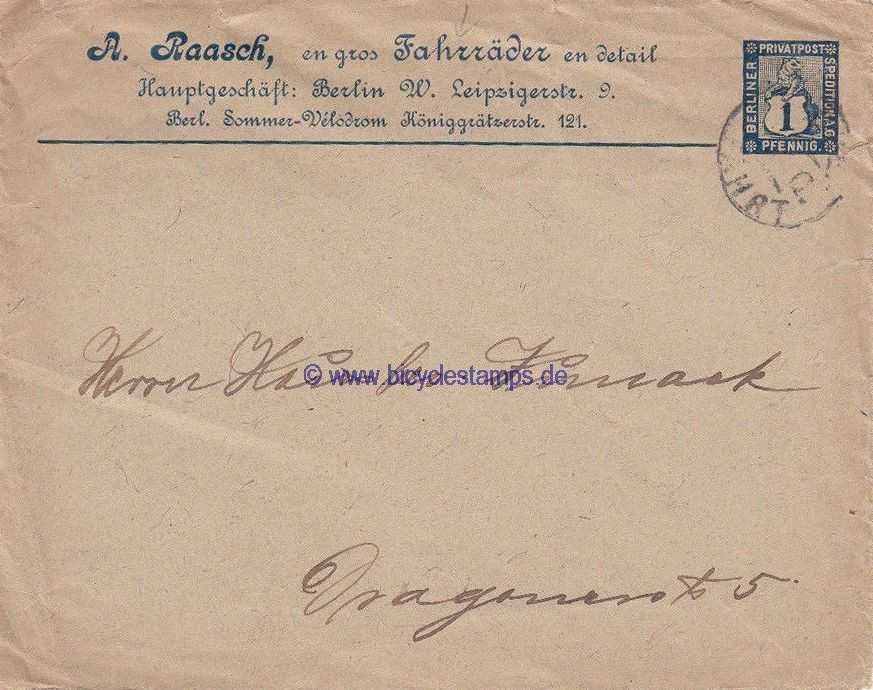 A. Raasch, en gros Fahrräder en detail
Hauptgeschäft: Berlin W. Leipzigerstr. 9.
Berl. Sommer-Vélodrom Königgrätzerstr. 121.
BERLINER PRIVATPOST SPEDITION A.G
1
PFENNIG.
HRT
Herrn
© www.bicyclestamps.de
Dragonerst 5.